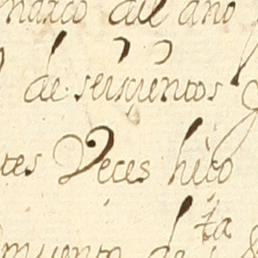 marco del año
de seiscientos
tes Veces hizo
ta